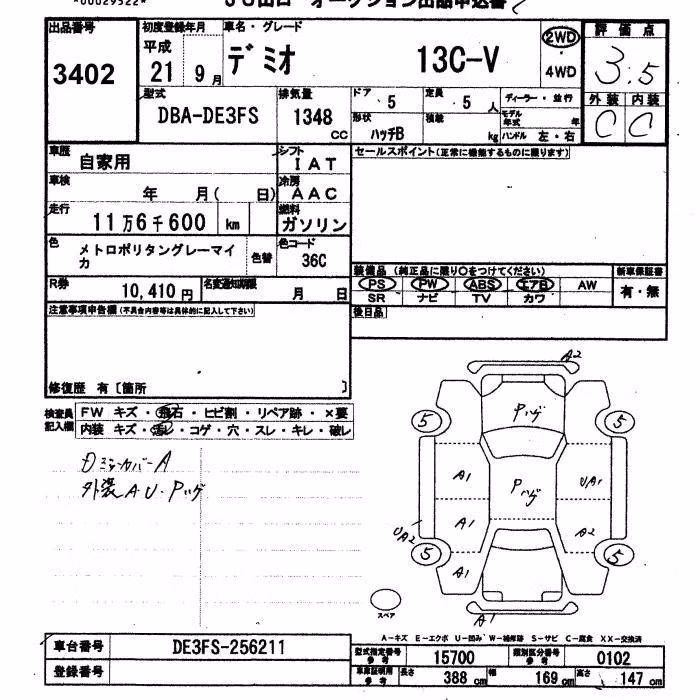 *00029522*
JU山口 オークション出品申込書
出品番号
3402
初度登録年月
平成
21 9月
車名・グレード
デミオ 13C-V
2WD
4WD
評価点
3.5
外装 内装
C C
型式
DBA-DE3FS
排気量
1348
CC
ドア
5
定員
5 人
ディーラー・並行
形状
ハッチB
積載
kg
モデル年式 年
ハンドル 左・右
車歴
自家用
シフト
IAT
セールスポイント(正常に機能するものに限ります)
車検
年 月( 日)
冷房
AAC
走行
11万6千600 km
燃料
ガソリン
色
メトロポリタングレーマイカ
色替
色コード
36C
R券
10,410円
名変通知期限
月 日
装備品(純正品に限り○をつけてください)
新車保証書
PS PW ABS エアB AW
有・無
SR ナビ TV カワ
後日品
注意事項申告欄(不具合内容等は具体的に記入して下さい)
修復歴 有〔箇所 〕
検査員記入欄
FW キズ・飛石・ヒビ割・リペア跡・×要
内装 キズ・汚レ・コゲ・穴・スレ・キレ・破レ
外装AU・Pハゲ
A2
5
Pハゲ
5
A1
Pハゲ
UA1
A1
A2
UA2
5
5
A1
A1
スペア
A-キズ E-エクボ U-凹み W-補修跡 S-サビ C-腐食 XX-交換済
車台番号
DE3FS-256211
登録番号
型式指定番号
参考
15700
類別区分番号
参考
0102
車庫証明用
参考
長さ
388 cm
幅
169 cm
高さ
147 cm